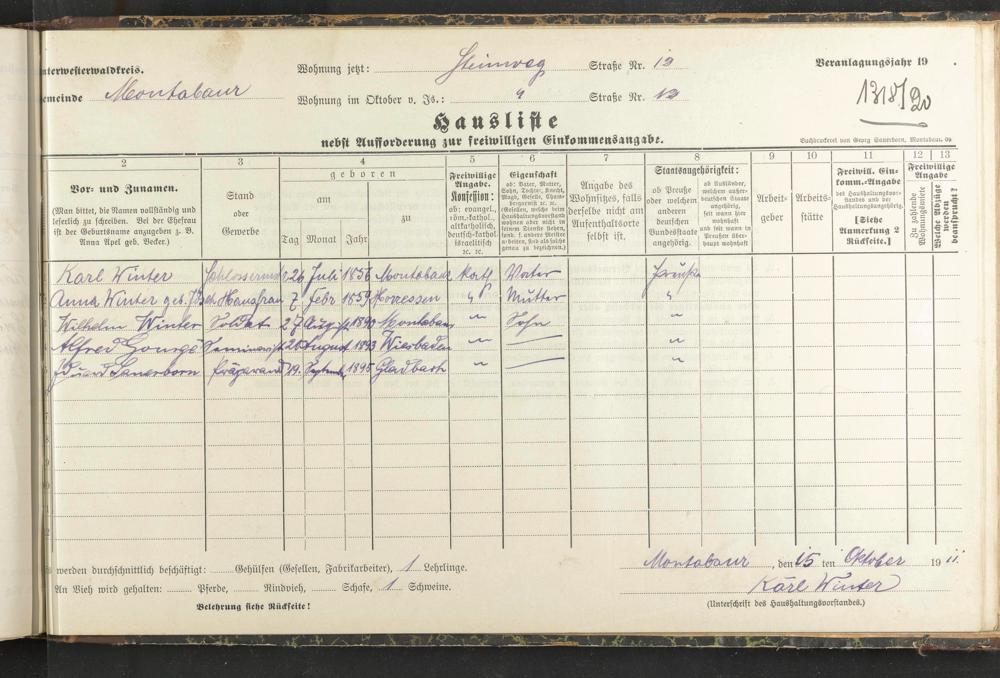 nterwesterwaldkreis.
Wohnung jetzt: Steinweg Straße Nr. 13
Veranlagungsjahr 19 .
emeinde Montabaur
Wohnung im Oktober v. Js.: " Straße Nr. 13
1318/20
Hausliste
nebst Aufforderung zur freiwilligen Einkommensangabe.
Buchdruckerei von Georg Sauerborn, Montabaur. 09
2 3 4 5 6 7 8 9 10 11 12 13
Vor- und Zunamen.
(Man bittet, die Namen vollständig und
leserlich zu schreiben. Bei der Ehefrau
ist der Geburtsname anzugeben z. B.
Anna Apel geb. Becker.)
Stand
oder
Gewerbe
geboren
am
zu
Tag Monat Jahr
Freiwillige
Angabe.
Konfession:
ob: evangel.,
röm.-kathol.,
altkatholisch,
deutsch-kathol.
israelitisch
ec. ec.
Eigenschaft
ob: Vater, Mutter,
Sohn, Tochter, Knecht,
Magd, Geselle, Cham-
bergarnist ec. ec.
Angabe des
Wohnsitzes, falls
derselbe nicht am
Aufenthaltsorte
selbst ist.
Staatsangehörigkeit:
ob Preuße
oder welchem
anderen
deutschen
Bundesstaate
angehörig.
ob Ausländer,
welchem außer-
deutschen Staate
angehörig,
seit wann hier
wohnhaft
und seit wann in
Preußen über-
haupt wohnhaft
Arbeit-
geber
Arbeits-
stätte
Freiwill. Ein-
komm.-Angabe
des Haushaltungsvor-
standes und der
Haushaltungsangehörig.
[Siehe
Anmerkung 2
Rückseite.]
Freiwillige
Angabe
Zu zahlende
Wohnungsmiete
Welche Abzüge
werden
beansprucht?
Karl Winter 26 Juli 1856 Montabaur kath. Vater Preuße
Anna Winter geb. Hausfrau 7 Febr 1859 Horressen " Mutter "
Wilhelm Winter Soldat 27 August 1890 Montabaur " Sohn "
Alfred Seminarist August 1893 Wiesbaden " — "
Eduard Sauerborn Präparand 29. Septemb. 1895 Gladbach " — "
werden durchschnittlich beschäftigt: Gehülfen (Gesellen, Fabrikarbeiter), 1 Lehrlinge.
Montabaur, den 15 ten Oktober 1911.
An Vieh wird gehalten: Pferde, Rindvieh, Schafe, 1 Schweine.
Karl Winter
Belehrung siehe Rückseite!
(Unterschrift des Haushaltungsvorstandes.)